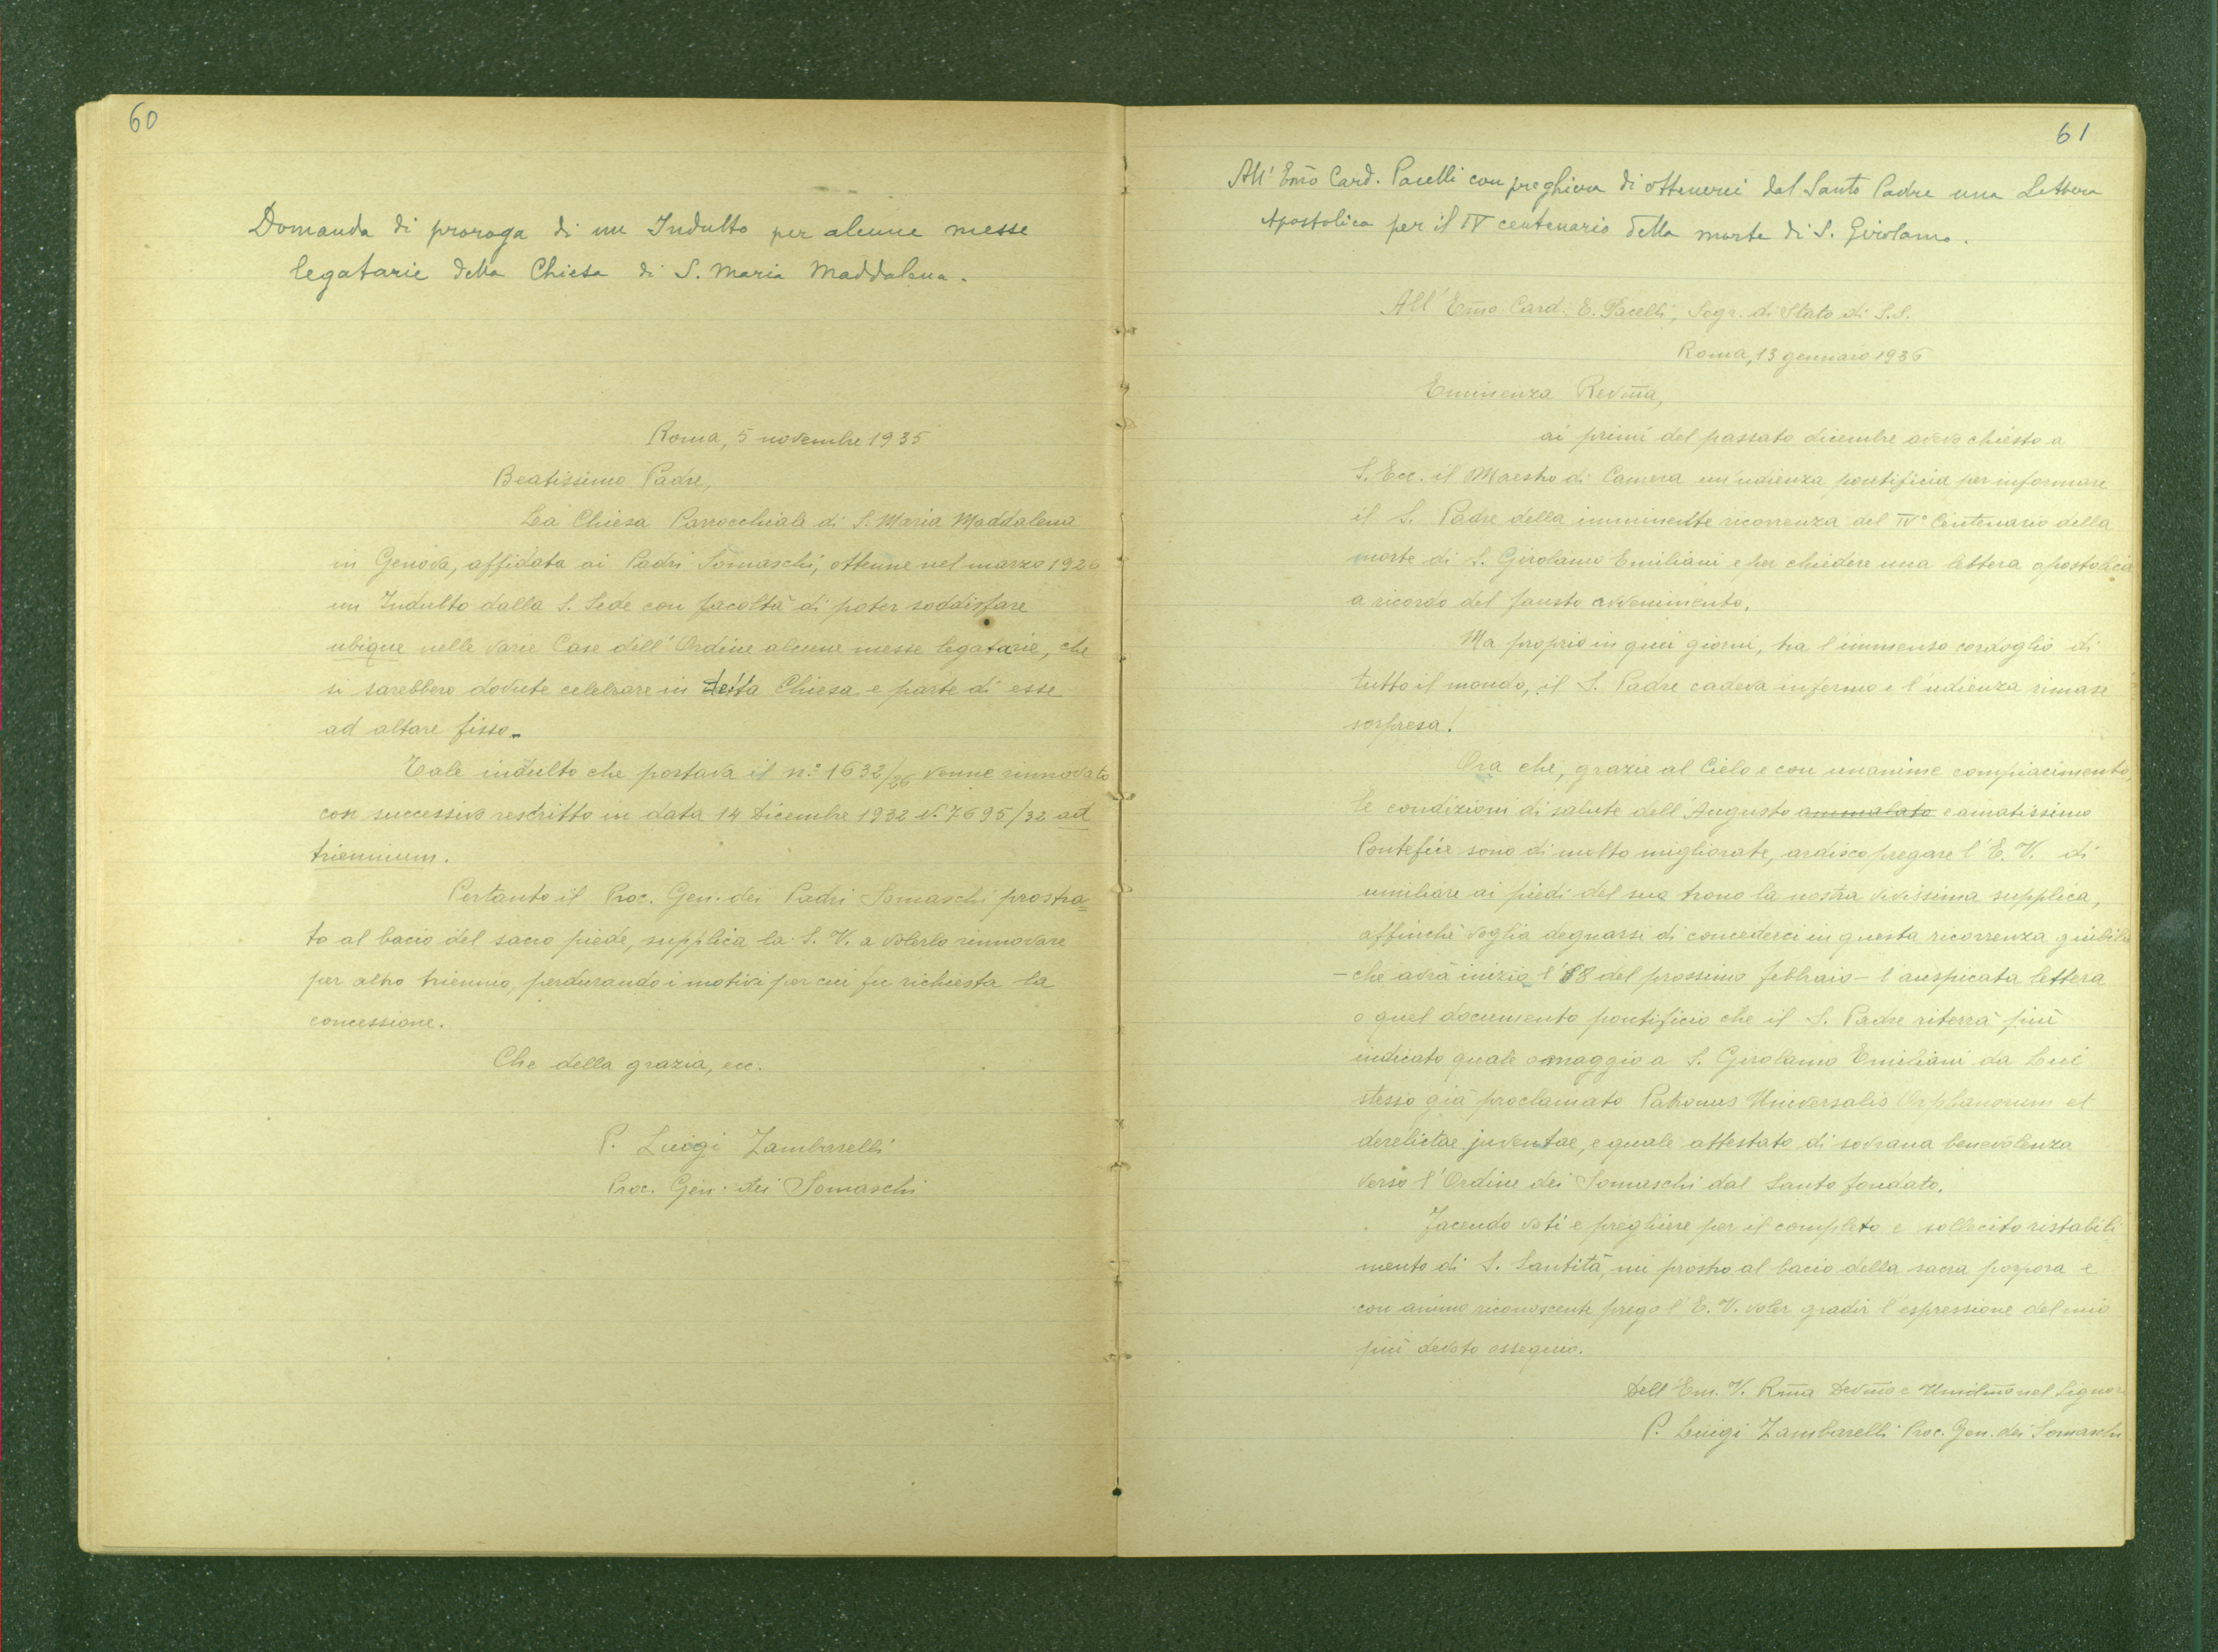 60
Domanda di proroga di un Indulto per alcune messe
legatarie della Chiesa di S. Maria Maddalena.
Roma, 5 novembre 1935
Beatissimo Padre,
La Chiesa Parrocchiale di S. Maria Maddalena
in Genova, affidata ai Padri Somaschi, ottenne nel marzo 1926
un Indulto dalla S. Sede con facoltà di poter soddisfare
ubique nelle varie Case dell'Ordine alcune messe legatarie, che
si sarebbero dovute celebrare in detta Chiesa e parte di esse
ad altare fisso.
Tale indulto che portava il n.º 1632/26 venne rinnovato
con successivo rescritto in data 14 Dicembre 1932 N. 7695/32 ad
triennium.
Pertanto il Proc. Gen. dei Padri Somaschi prostra=
to al bacio del sacro piede, supplica la S. V. a volerlo rinnovare
per altro triennio, perdurando i motivi per cui fu richiesta la
concessione.
Che della grazia, ecc.
P. Luigi Zambarelli
Proc. Gen. dei Somaschi
61
All'Emo Card. Pacelli con preghiera di ottenerci dal Santo Padre una Lettera
Apostolica per il IV centenario della morte di S. Girolamo.
All'Emo Card. E. Pacelli, Segr. di Stato di S.S.
Roma, 13 gennaio 1936
Eminenza Revma,
ai primi del passato dicembre avevo chiesto a
S. Ecc. il Maestro di Camera un'udienza pontificia per informare
il S. Padre della imminente ricorrenza del IVº Centenario della
morte di S. Girolamo Emiliani e per chiedere una lettera apostolica
a ricordo del fausto avvenimento.
Ma proprio in quei giorni, tra l'immenso cordoglio di
tutto il mondo, il S. Padre cadeva infermo e l'udienza rimase
sospesa!
Ora che, grazie al Cielo e con unanime compiacimento,
le condizioni di salute dell'Augusto ammalato e amatissimo
Pontefice sono di molto migliorate, ardisco pregare l'E. V. di
umiliare ai piedi del suo trono la nostra vivissima supplica,
affinchè voglia degnarsi di concederci in questa ricorrenza giubilare
– che avrà inizio l'8 del prossimo febbraio – l'auspicata lettera
o quel documento pontificio che il S. Padre riterrà più
indicato quale omaggio a S. Girolamo Emiliani da Lui
stesso già proclamato Patronus Universalis Orphanorum et
derelictae juventae, e quale attestato di sovrana benevolenza
verso l'Ordine dei Somaschi dal Santo fondato.
Facendo voti e preghiere per il completo e sollecito ristabili
mento di S. Santità, mi prostro al bacio della sacra porpora e
con animo riconoscente prego l'E. V. voler gradir l'espressione del mio
più devoto ossequio.
Dell'Em. V. Rma Devmo e Umilmo nel Signore
P. Luigi Zambarelli Proc. Gen. dei Somaschi